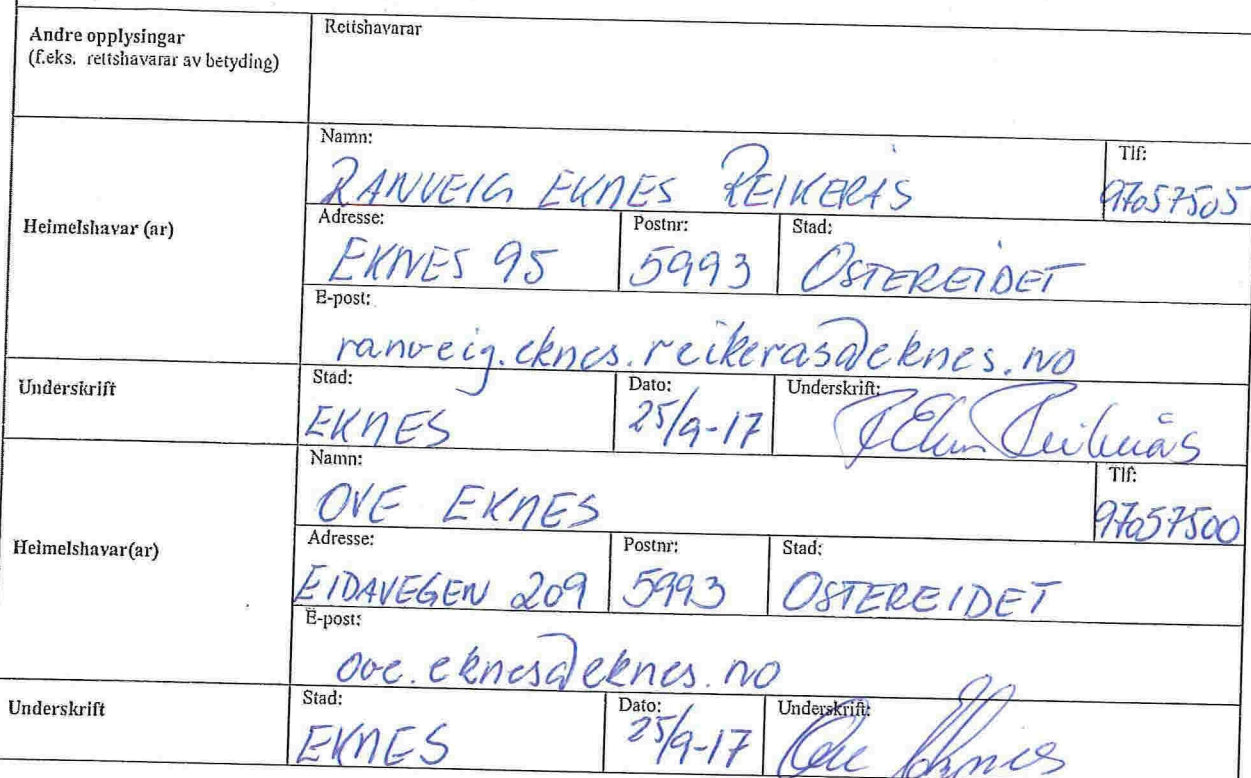 Andre opplysingar
(f.eks. rettshavarar av betyding)
Rettshavarar
Heimelshavar (ar)
Namn:
RANVEIG EKNES REIKERÅS
Tlf:
97057505
Adresse:
EKNES 95
Postnr:
5993
Stad:
OSTEREIDET
E-post:
ranveig.eknes.reikeras@eknes.no
Underskrift
Stad:
EKNES
Dato:
25/9-17
Underskrift:
Heimelshavar(ar)
Namn:
OVE EKNES
Tlf:
97057500
Adresse:
EIDAVEGEN 209
Postnr:
5993
Stad:
OSTEREIDET
E-post:
ove.eknes@eknes.no
Underskrift
Stad:
EKNES
Dato:
25/9-17
Underskrift:
Ove Eknes